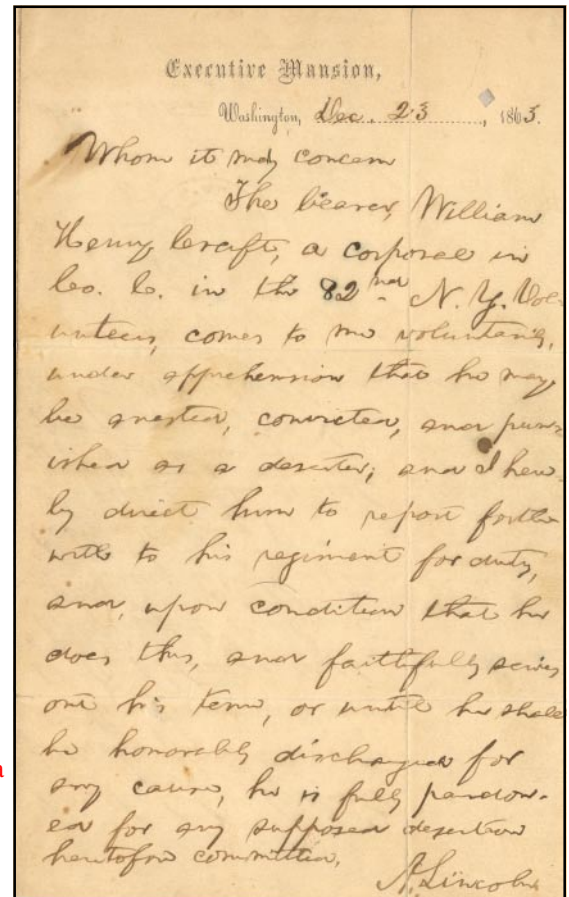 Executive Mansion,
Washington, Dec. 23, 1863.
Whom it may concern
The bearer, William
Henry Craft, a corporal in
Co. C. in the 82nd N. Y. Vol-
unteers, comes to me voluntarily,
under apprehension that he may
be arrested, convicted, and pun-
ished as a deserter; and I here-
by direct him to report forth
with to his regiment for duty,
and, upon condition that he
does this, and faithfully serves
out his term, or until he shall
be honorably discharged for
any cause, he is fully pardon-
ed for any supposed desertion
heretofore committed.
A. Lincoln
a